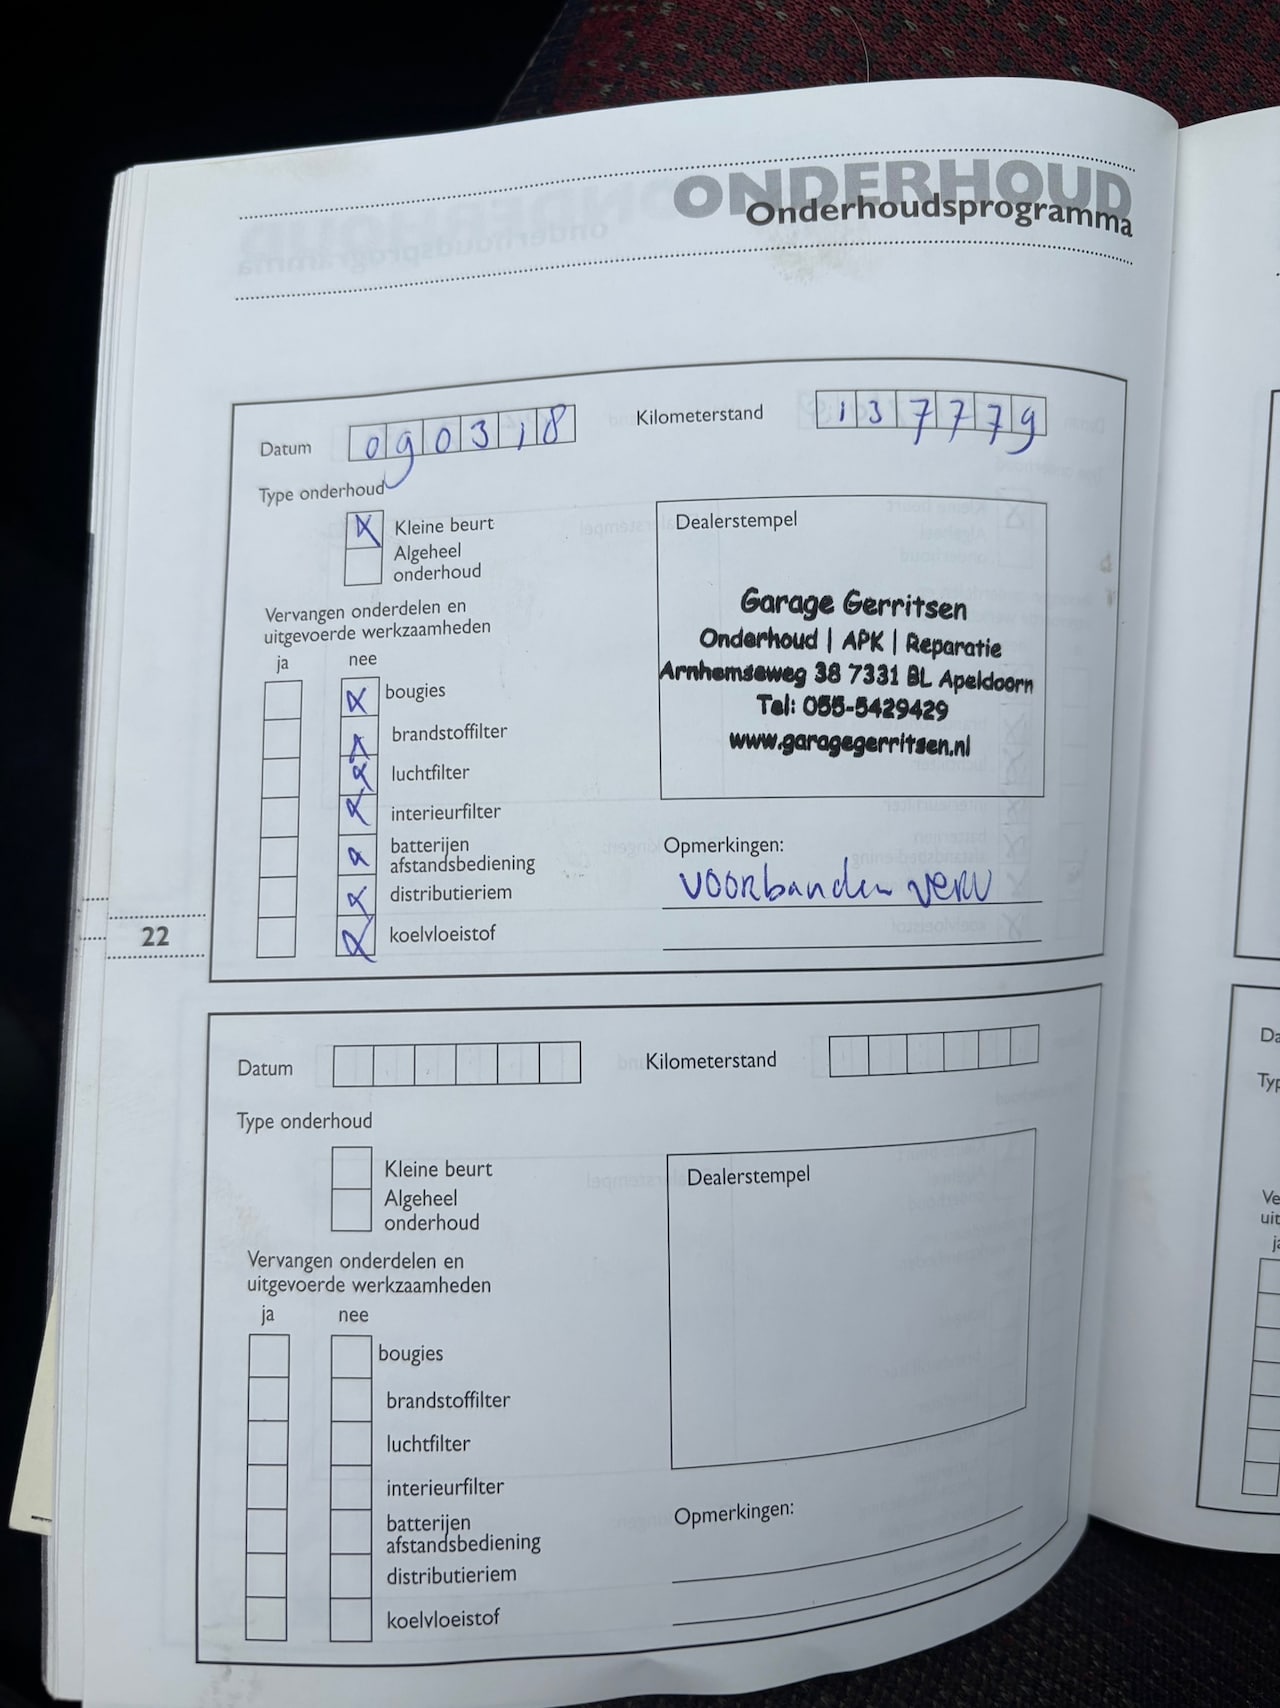 ONDERHOUD
Onderhoudsprogramma
Datum 090318 Kilometerstand 137779
Type onderhoud
Kleine beurt
Algeheel
onderhoud
Dealerstempel
Garage Gerritsen
Onderhoud | APK | Reparatie
Arnhemseweg 38 7331 BL Apeldoorn
Tel: 055-5429429
www.garagegerritsen.nl
Vervangen onderdelen en
uitgevoerde werkzaamheden
ja nee
bougies
brandstoffilter
luchtfilter
interieurfilter
batterijen
afstandsbediening
distributieriem
koelvloeistof
Opmerkingen:
voorbanden verv
22
Datum Kilometerstand
Type onderhoud
Kleine beurt
Algeheel
onderhoud
Dealerstempel
Vervangen onderdelen en
uitgevoerde werkzaamheden
ja nee
bougies
brandstoffilter
luchtfilter
interieurfilter
batterijen
afstandsbediening
distributieriem
koelvloeistof
Opmerkingen: